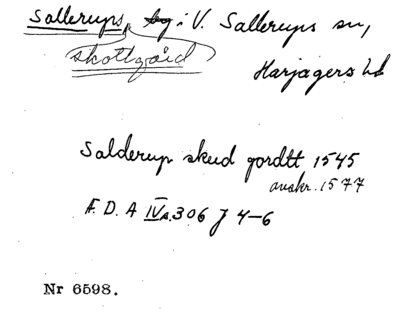 Sallerups, i V. Sallerups sn,
skottgård
Harjagers hd
Salderup skud gordtt 1545
avskr. 1577
F. D. A IVa. 306 J 4–6
Nr 6598.